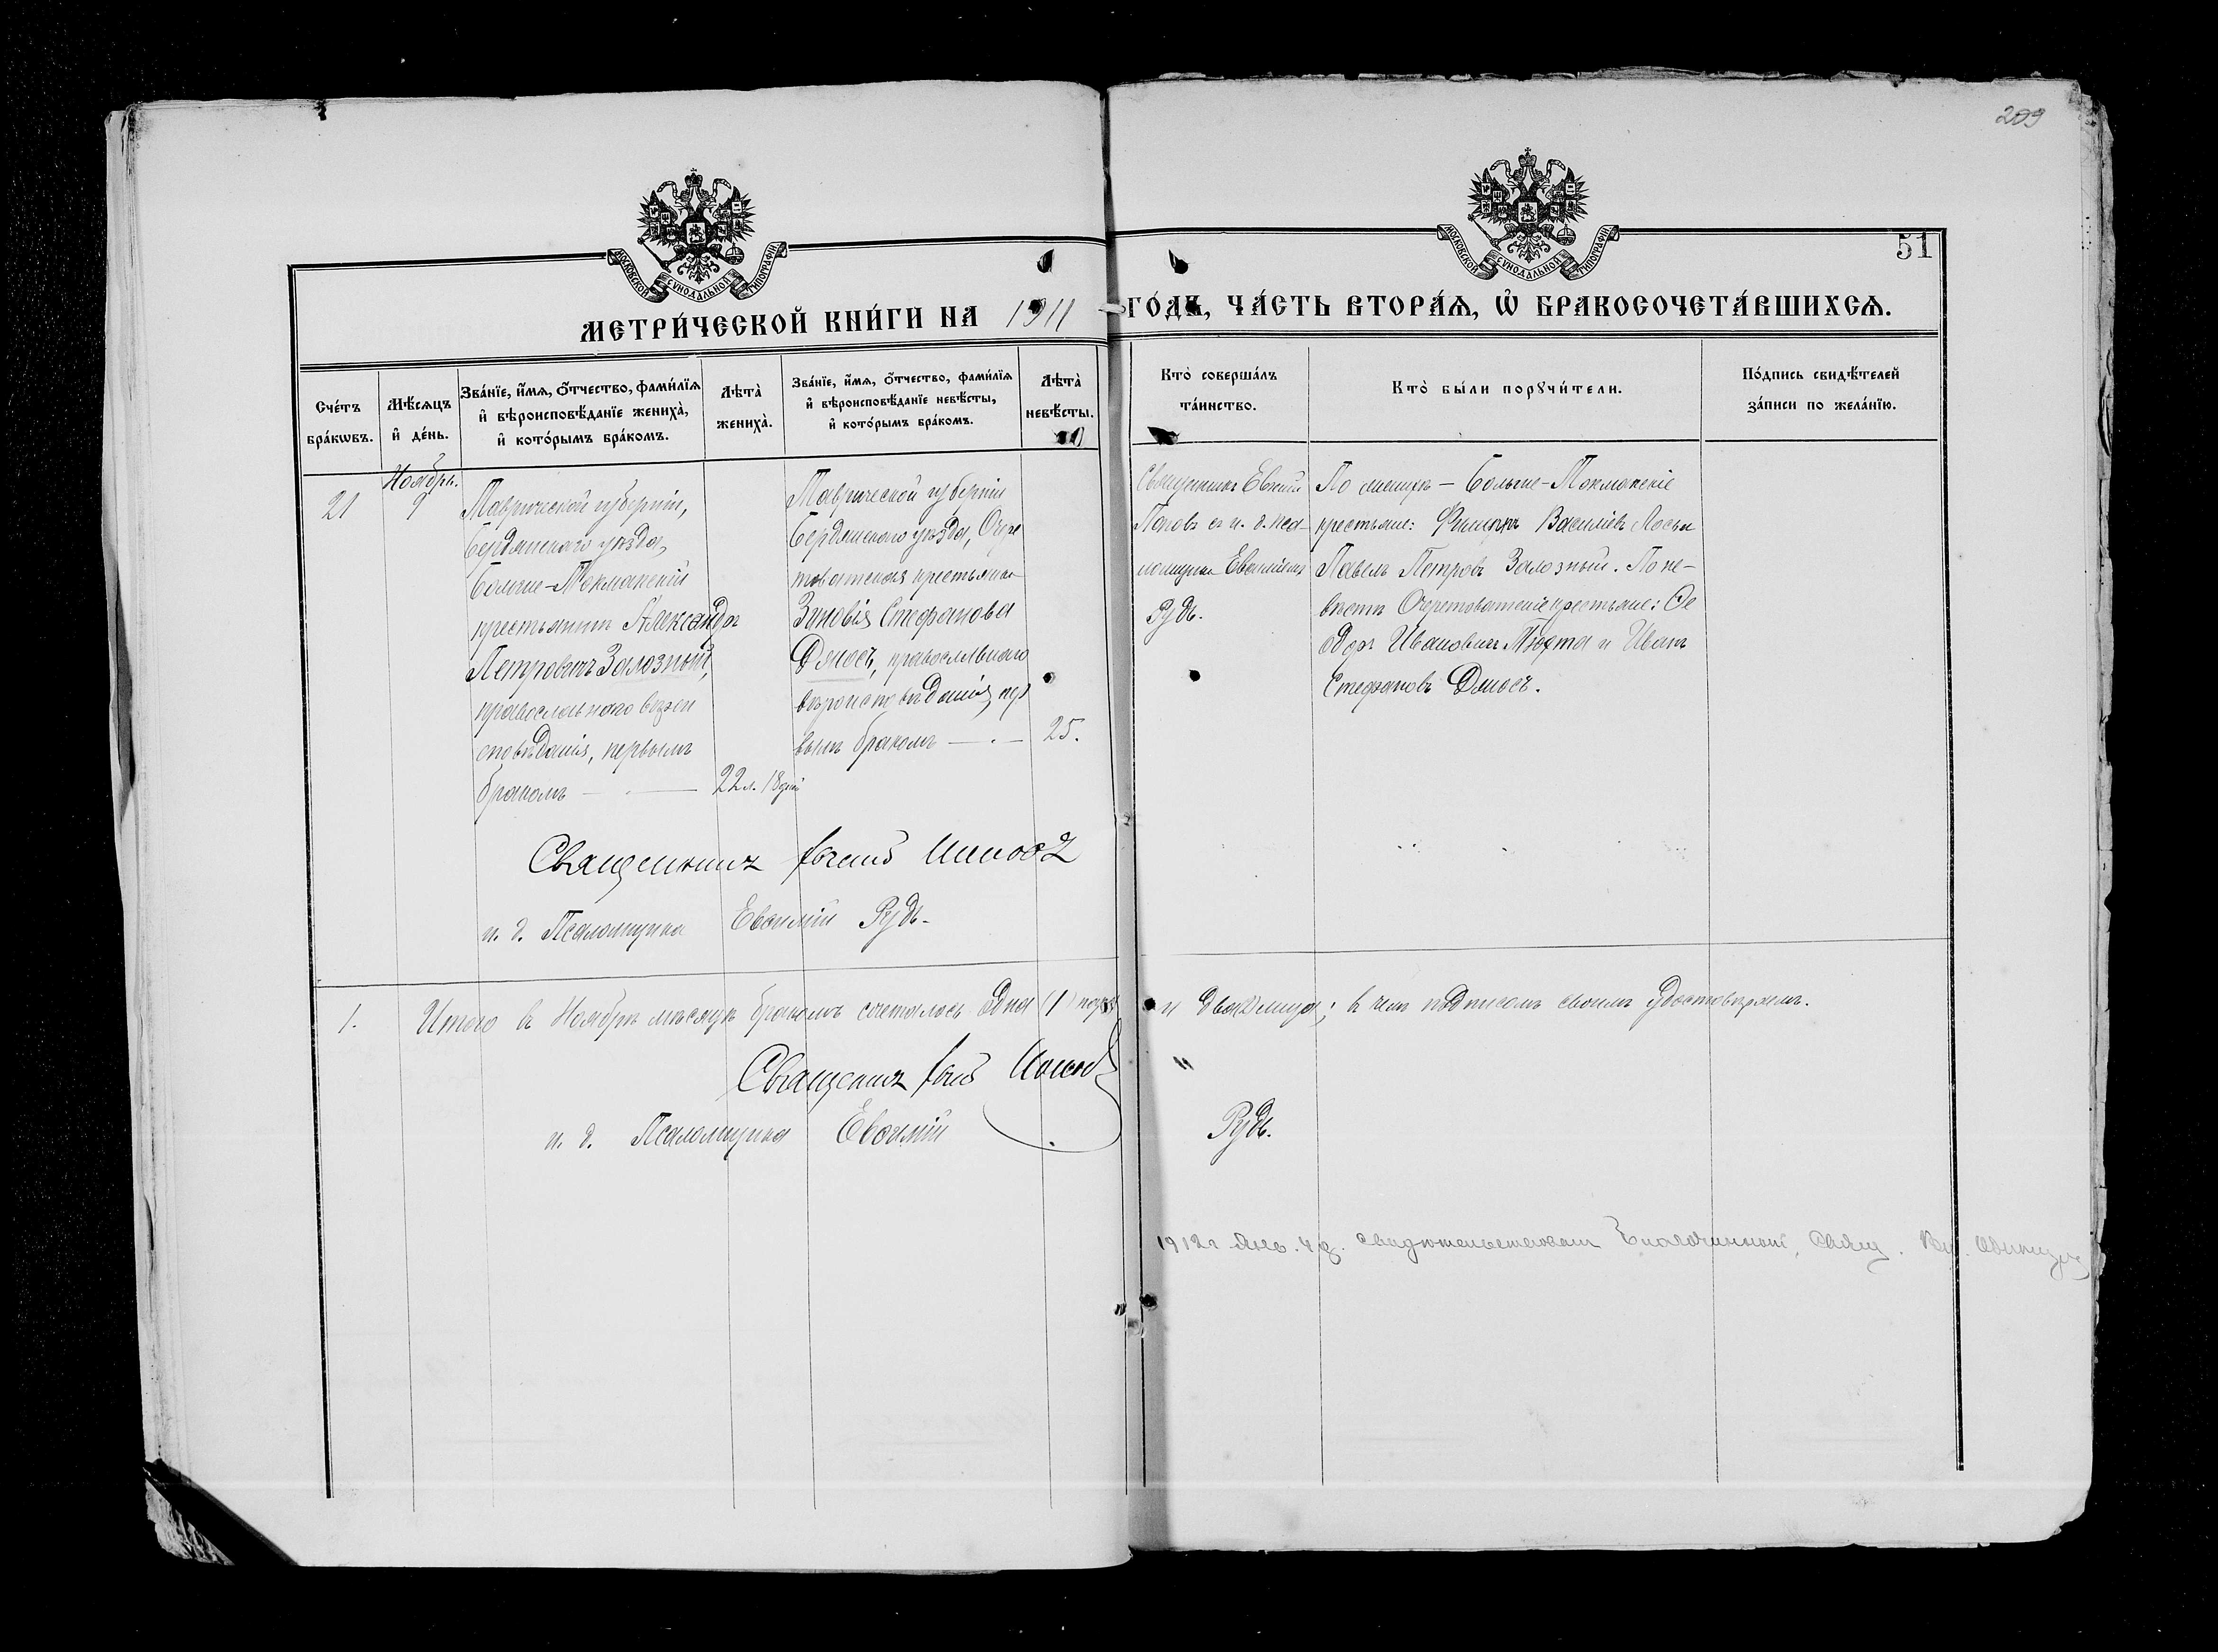 209
51
МОСКОВСКОЙ СѴНОДАЛЬНОЙ ТИПОГРАФІИ
МОСКОВСКОЙ СѴНОДАЛЬНОЙ ТИПОГРАФІИ
МЕТРИ́ЧЕСКОЙ КНИ́ГИ НА 1911 ГО́ДЪ, ЧА́СТЬ ВТОРА́Ѧ, Ѡ҆ БРАКОСОЧЕТА́ВШИХСѦ.
Сче́тъ
бра́кѡвъ.
Мѣ́сяцъ
и҆ де́нь.
Зва́нїе, и҆́мѧ, ѻ҆́тчество, фами́лїѧ
и҆ вѣроисповѣ́данїе жениха̀,
и҆ кото́рымъ бра́комъ.
Лѣ́та̀
жениха̀.
Зва́нїе, и҆́мѧ, ѻ҆́тчество, фами́лїѧ
и҆ вѣроисповѣ́данїе невѣ́сты,
и҆ кото́рымъ бра́комъ.
Лѣ́та̀
невѣ́сты.
Кто̀ соверша́лъ
та́инство.
Кто̀ бы́ли порꙋчи́тели.
По́дпись свидѣ́телей
за́писи по жела́нїю.
21
Ноябрь.
9
Таврической губерніи,
Бердянскаго уѣзда,
Больше-Токмакскій
крестьянинъ Александръ
Петровичъ Залозный,
православнаго вѣрои
сповѣданія, первымъ
бракомъ — . —
22 л. 18 дней
Таврической губерніи
Бердянскаго уѣзда, Очре
товатская крестьянка
Зиновія Стефанова
Дмосъ, православнаго
вѣроисповѣданія, пер
вымъ бракомъ — . —
25.
Священникъ
Поповъ съ и. д. пса
ломщика Евѳиміемъ
Рудь.
По женихѣ — Больше-Токмакскіе
крестьяне: Филиппъ Василіевъ
Павелъ Петровъ Залозный. По не-
вѣстѣ Очеретоватскіе крестьяне: Ѳе
одоръ Ивановичъ и Иванъ
Стефановъ Дмосъ.
Священникъ Поповъ
и. д. Псаломщика Евѳимій Рудь.
1. Итого въ Ноябрѣ мѣсяцѣ бракомъ сочеталось одна (1) пара и два (2) лица; въ чемъ подписомъ своимъ удостовѣряемъ.
Священникъ Поповъ
и. д. Псаломщика Евѳимій Рудь.
1912 г. Янв. 4 д. свидѣтельствовалъ Благочинный, Свящ.